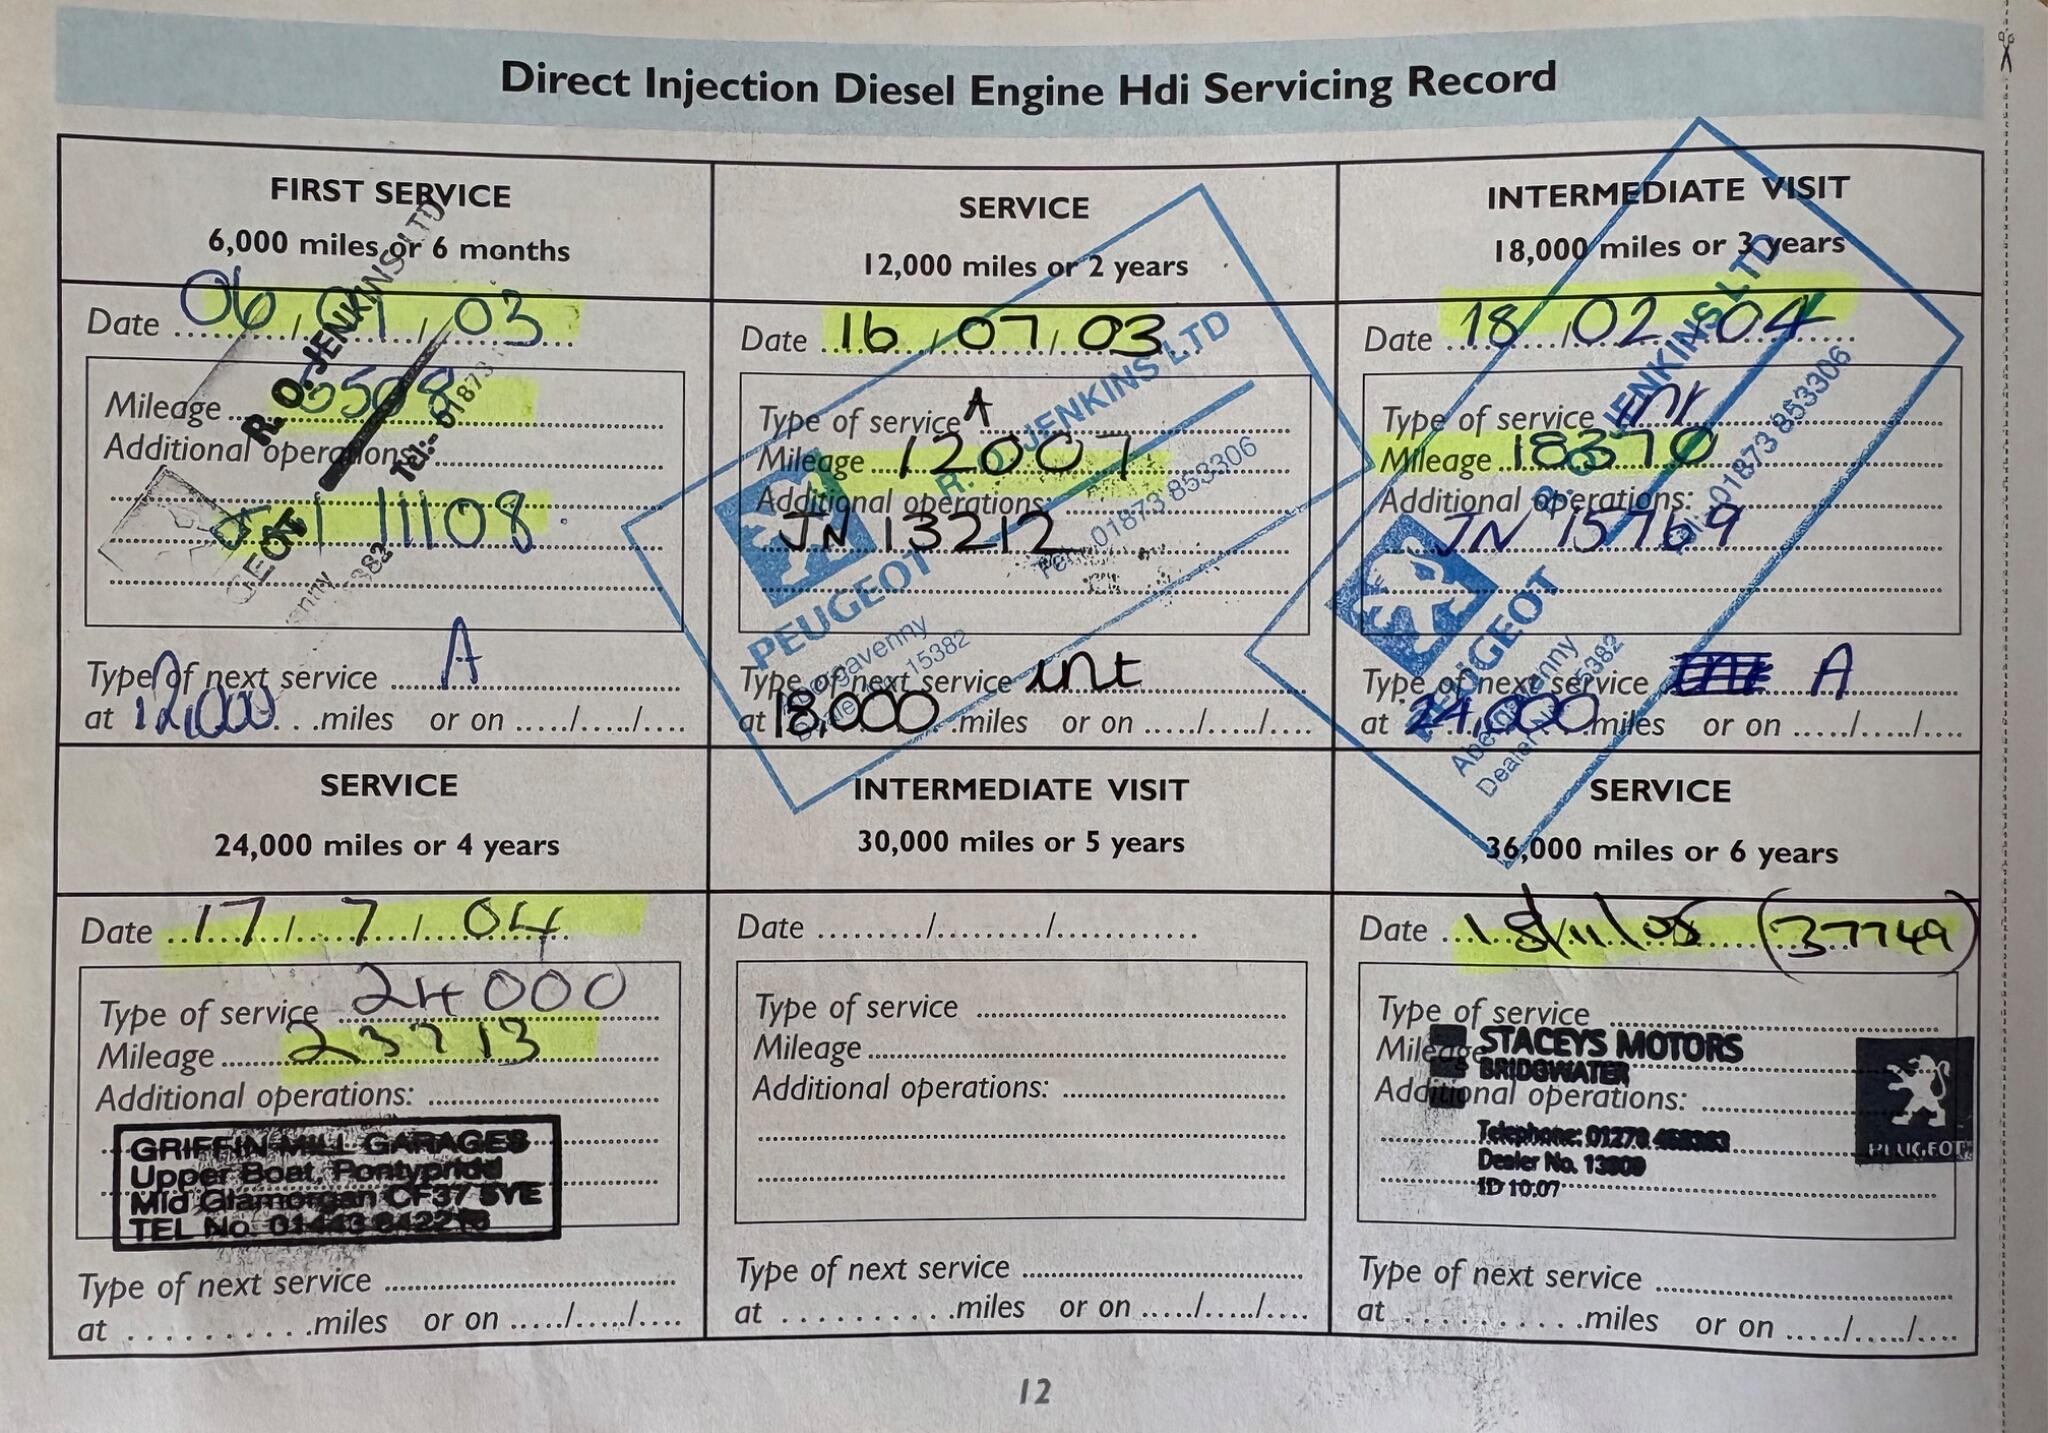 Direct Injection Diesel Engine Hdi Servicing Record
FIRST SERVICE
6,000 miles or 6 months
Date 06 / 01 / 03
Mileage 6508
Additional operations:
11108
R. O. JENKINS LTD
Tel:- 01873
Type of next service A
at 12,000 miles or on ...../...../....
SERVICE
12,000 miles or 2 years
Date 16 / 07 / 03
Type of service A
Mileage 12007
Additional operations:
JN 13212
R. O. JENKINS LTD
01873 853306
PEUGEOT
Abergavenny
15382
Type of next service int
at 18,000 miles or on ...../...../....
INTERMEDIATE VISIT
18,000 miles or 3 years
Date 18 / 02 / 04
Type of service int
Mileage 18370
Additional operations:
JN 15769
R. O. JENKINS LTD
01873 853306
PEUGEOT
Abergavenny
Dealer No. 15382
Type of next service A
at 24,000 miles or on ...../...../....
SERVICE
24,000 miles or 4 years
Date 17 / 7 / 04
Type of service 24000
Mileage 23713
Additional operations:
GRIFFIN MILL GARAGES
Upper Boat, Pontypridd
Mid Glamorgan CF37 5YE
TEL No. 01443 842216
Type of next service
at .......... miles or on ...../...../....
INTERMEDIATE VISIT
30,000 miles or 5 years
Date ........./........../............
Type of service
Mileage
Additional operations:
Type of next service
at .......... miles or on ...../...../....
SERVICE
36,000 miles or 6 years
Date 18/11/05 (37749)
Type of service
Mileage
Additional operations:
STACEYS MOTORS
BRIDGWATER
Telephone: 01278
Dealer No.
ID 10:07
PEUGEOT
Type of next service
at .......... miles or on ...../...../....
12